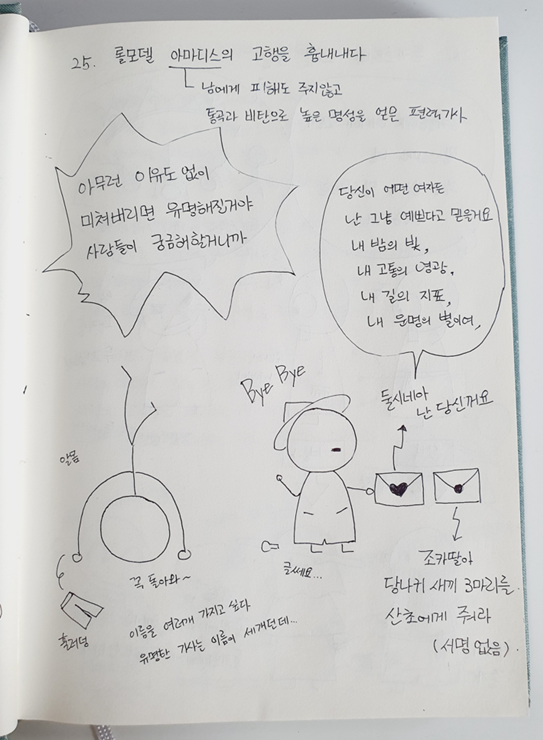 25. 롤모델 아마디스의 고행을 흉내내다
남에게 피해도 주지않고
통곡과 비탄으로 높은 명성을 얻은 편력기사
아무런 이유도 없이
미쳐버리면 유명해질거야
사람들이 궁금해할거니까
당신이 어떤 여자든
난 그냥 예쁘다고 믿을거요
내 밤의 빛,
내 고통의 영광,
내 길의 지표,
내 운명의 별이여,
Bye Bye
둘시네아
난 당신꺼요
알몸
꼭 돌아와~
글쎄요...
조카딸아
당나귀 새끼 3마리를
산초에게 줘라
(서명 없음).
훌러덩
이름을 여러개 가지고 싶다
유명한 기사는 이름이 세개던데...